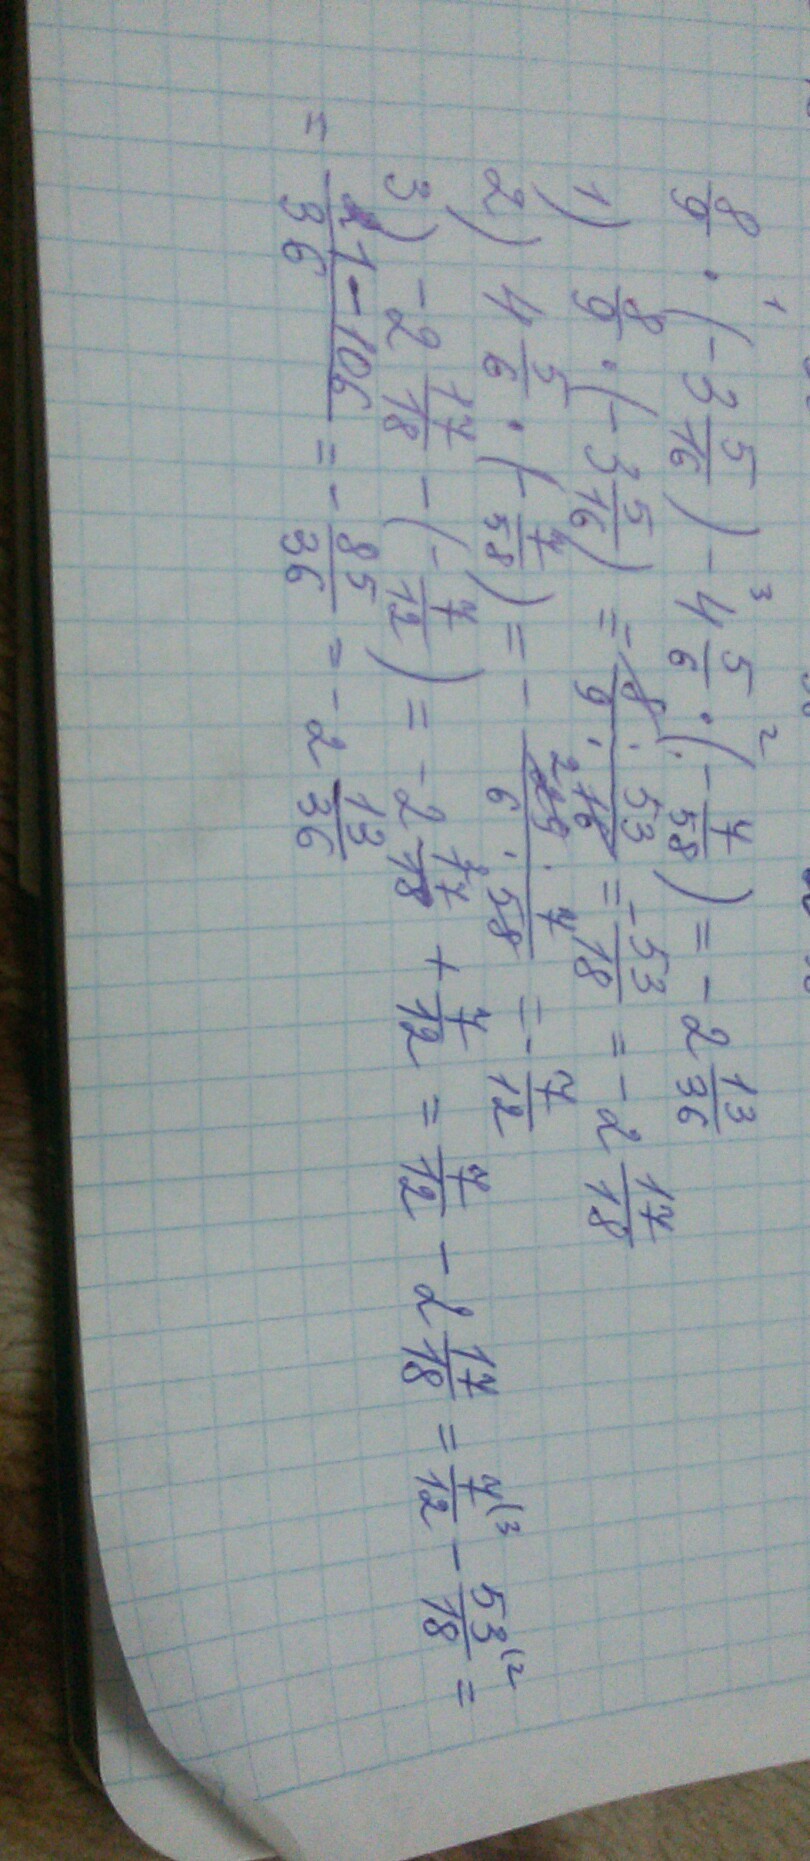 8/9 · (-3 5/16) - 4 5/6 · (-7/58) = -2 13/36
1) 8/9 · (-3 5/16) = -(8 · 53)/(9 · 16) = -53/18 = -2 17/18
2) 4 5/6 · (-7/58) = -(29 · 7)/(6 · 58) = -7/12
3) -2 17/18 - (-7/12) = -2 17/18 + 7/12 = 7/12 - 2 17/18 = 7/12 (3 - 53/18 (2 =
= (21-106)/36 = -85/36 = -2 13/36